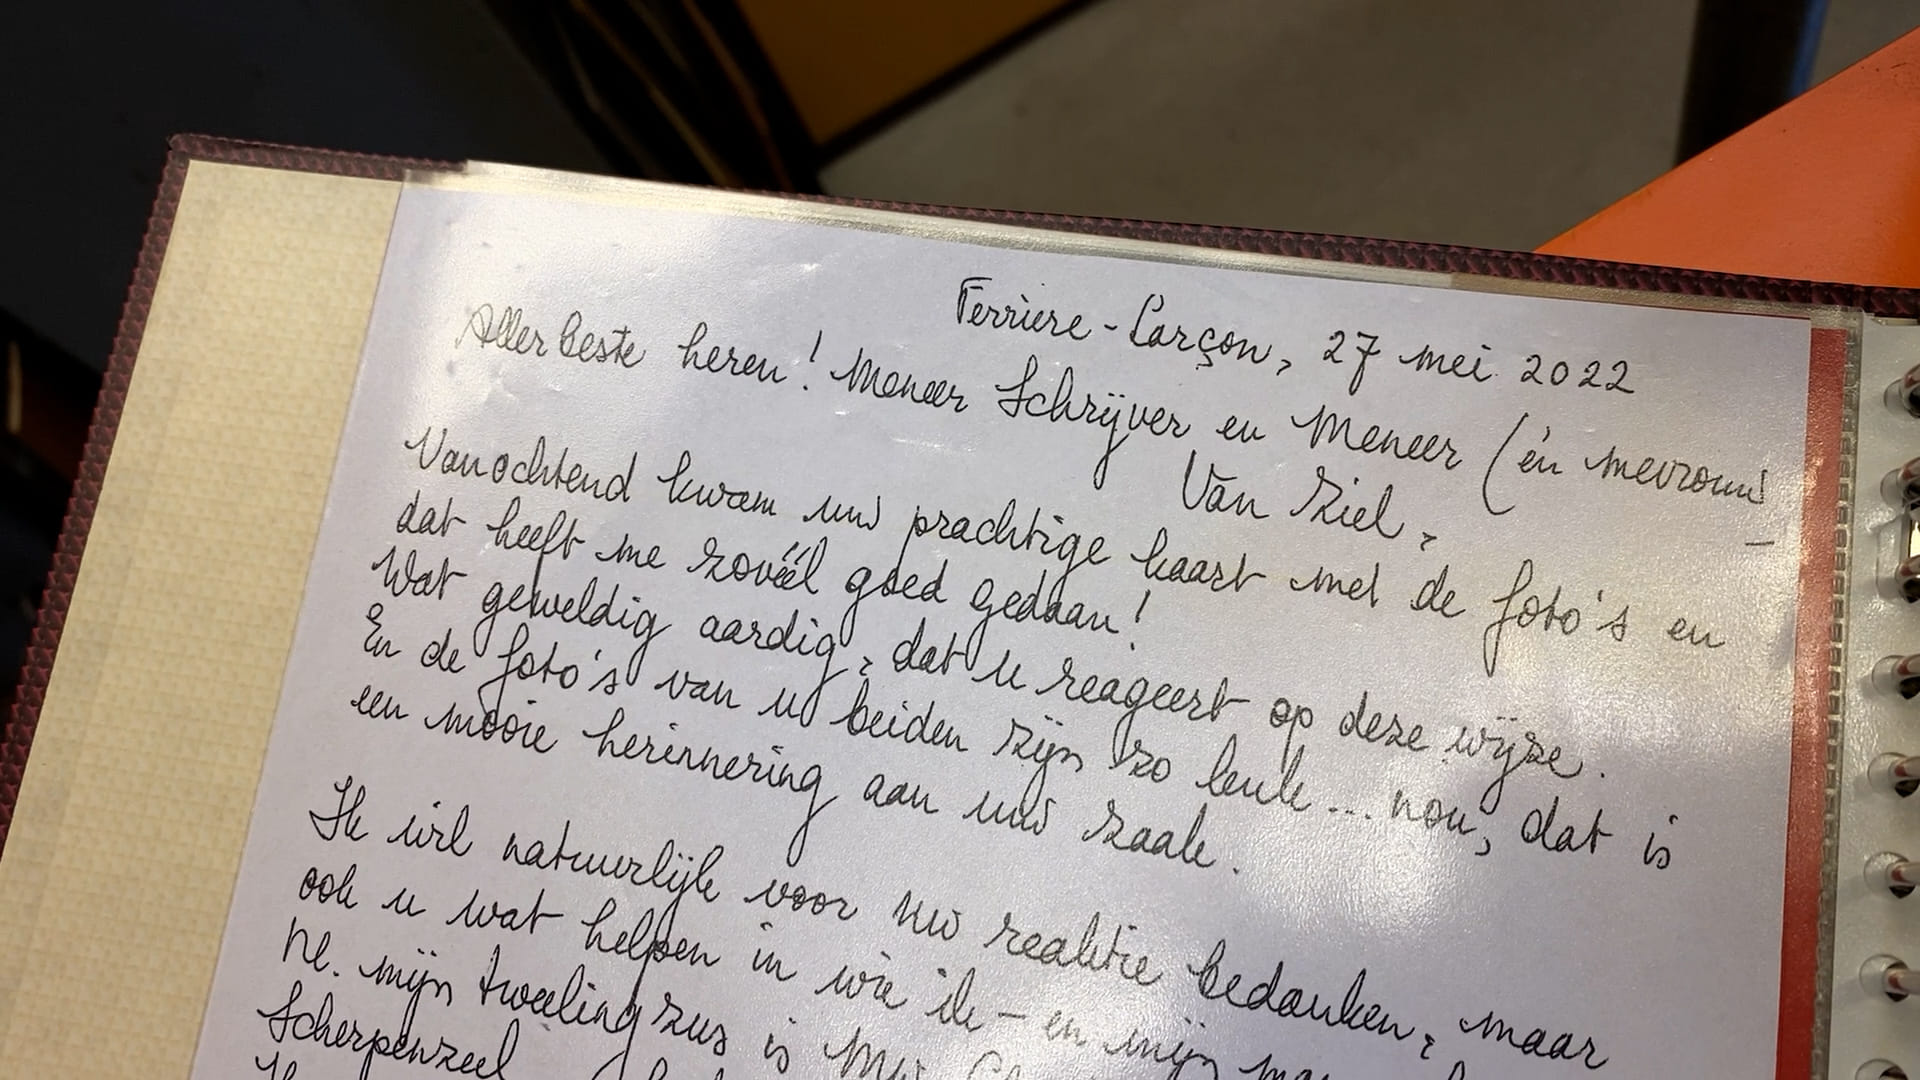 Ferriere-Larçon, 27 mei 2022
Aller beste heren! Meneer Schrijver en Meneer (én mevrouw
Van Ziel,
Vanochtend kwam uw prachtige kaart met de foto's en
dat heeft me zovéél goed gedaan!
Wat geweldig aardig, dat u reageert op deze wijze.
En de foto's van u beiden zijn zo leuk... nou, dat is
een mooie herinnering aan uw zaak.
Ik wil natuurlijk voor uw reaktie bedanken, maar
ook u wat helpen in wie ik - en mijn
Nl. mijn tweelingzus is Mw.
Scherpenzeel